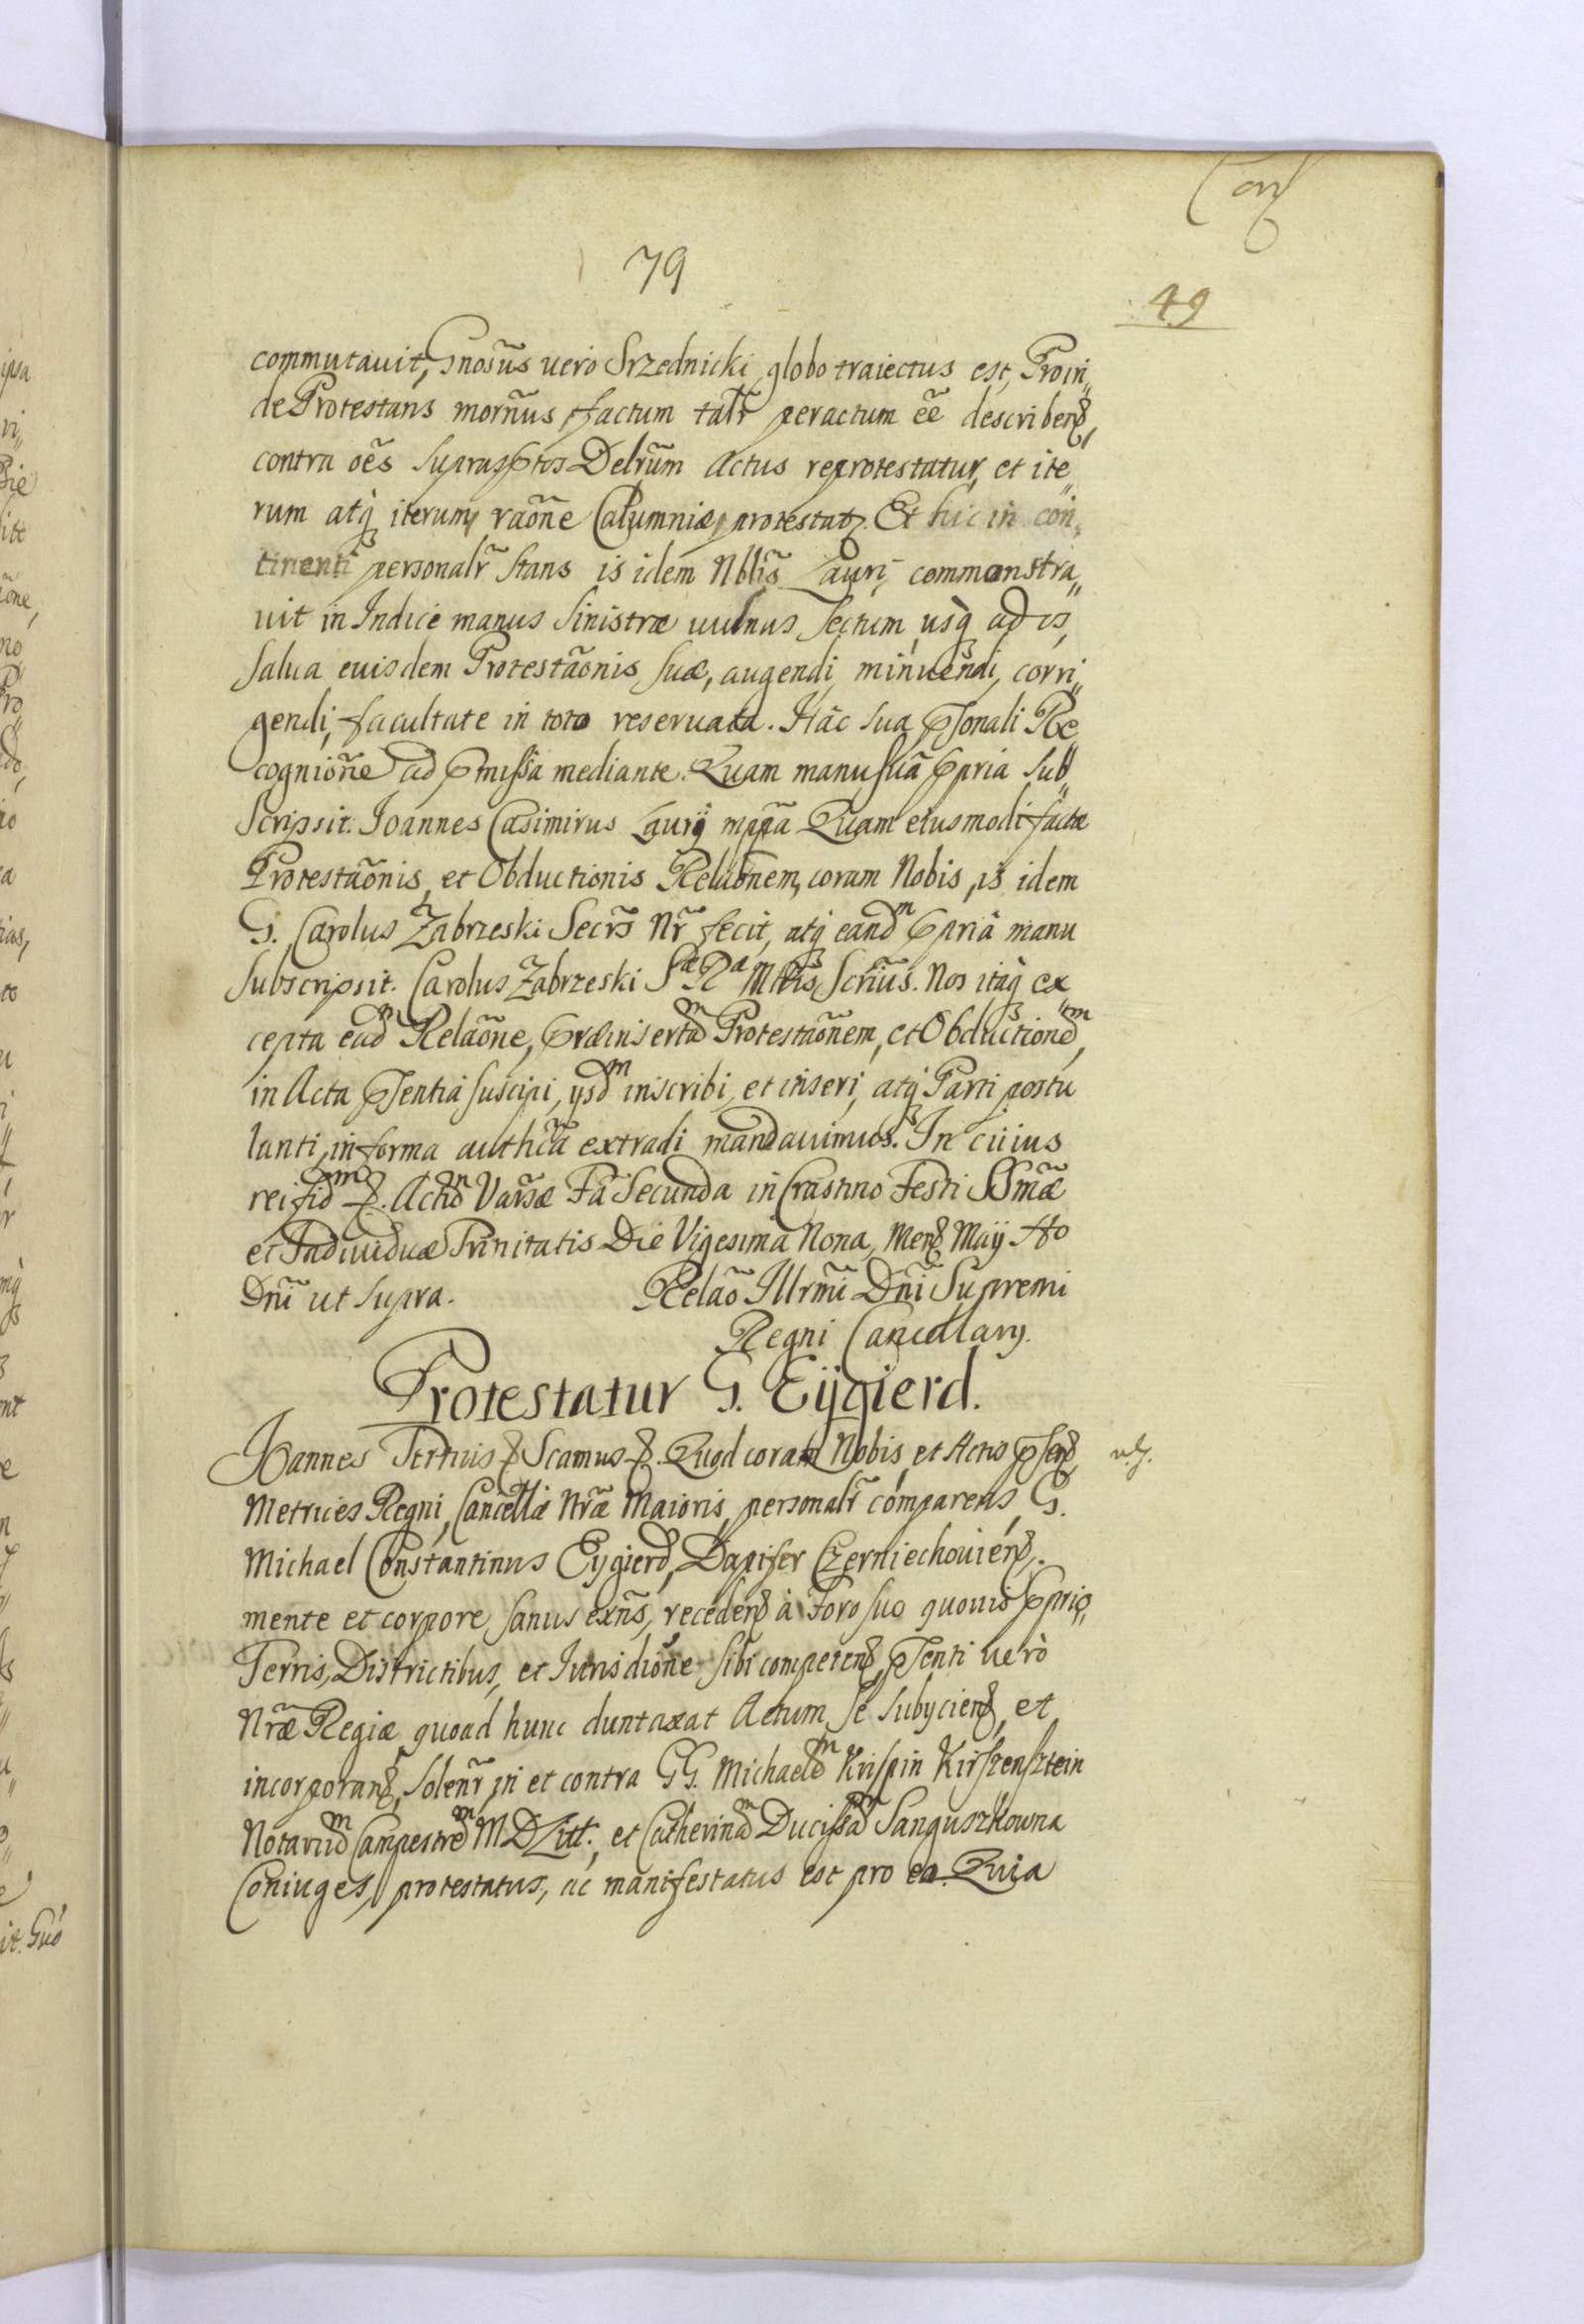 79
49
commutauit, Gnosũs uero Srzednicki globo traiectus est, Proin„
de Protestans mornũs, factum talr̃ peractum eẽ describens,
contra oẽs supraspt̃os Delr̃um Actus reprotestatur, et ite„
rum atq̀ iterum, raõne Calumniæ, protestatr. Et hic in con„
tinenti personalr̃ stans is idem Nblĩs Lauri, commonstra„
uit in Indice manus sinistræ uulnus sectum usq̀ ad os,
salua euisdem Protestaõnis suæ, augendi, minuendi, corri„
gendi, facultate in toto reseruata. Hac sua pſonali Re„
cognioñe ad pmißa mediante. Quam manu suã ppria sub„
scripsit. Ioannes Casimirus Laurÿ mppã Quam eiusmodi factæ
Protestaõnis, et Obductionis Relaõnem, coram Nobis, is idem
G. Carolus Zabrzeski Secrs̃ Nr̃ fecit, atq̀ eandm ppriã manu
subscripsit. Carolus Zabrzeski Sæ Ra Mttĩs Scriũs. Nos itaq̀ ex
cepta eadm Relaõne, præinsertam Protestaõnem, et Obductionem,
in Acta pſentia suscipi, ysdm inscribi, et inseri, atq̀ Parti postu
lanti, in forma authc̃a extradi mandauimus. In cuius
rei fidm &. Actum Varsæ Fã Secunda in Crastino Festi SSmæ̃
et Indiuiduæ Trinitatis Die Vigesima Nona, Mens Maÿ Ao
Dnĩ ut supra. Relaõ Illrmĩ Dnĩ Supremi
Regni Cancellary.
Protestatur G. Eÿgierd.
Ioannes Tertius & Scamus &. Quod coram Nobis, et Actis pſens
Metrices Regni, Cancellæ Nræ̃ Maioris, personalr̃ comparens, G.
Michael Constantinus Eygierd, Dapifer Czerniechouiens.
mente et corpore sanus exñs, recedens à Foro suo quouis pprio,
Terris, Districtibus, et Iurisdioñe sibi competens, pſenti uerò
Nræ̃ Regiæ quoad hunc duntaxat Actum se subyciens, et
incorporans, solenr̃ in et contra GG. Michaelem Kriſpin Kirſzenſztein
Notarium Campestrem MDLitt., et Catherinam Ducißam Sanguszkowna
Coniuges, protestatus, ac manifestatus est pro eo. Quia